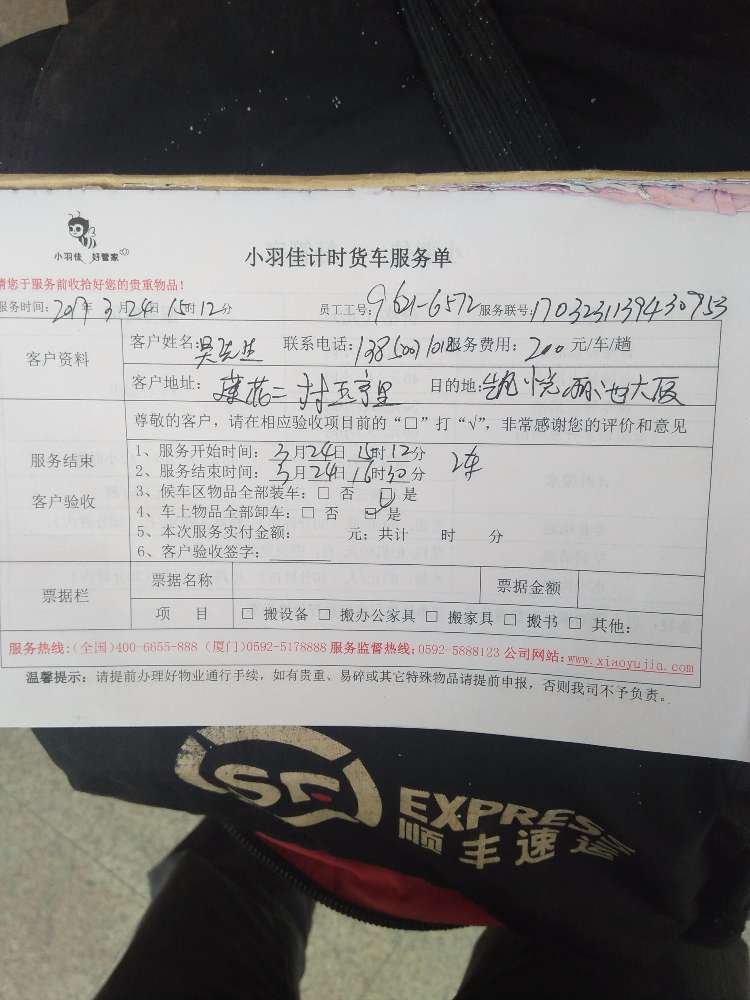 小羽佳 好管家
小羽佳计时货车服务单
请您于服务前收拾好您的贵重物品!
服务时间: 2017年3月24日15时12分 员工工号: 9621-6572 服务联号: 1703231139430753
客户资料
客户姓名: 吴先生 联系电话: 服务费用: 200元/车/趟
客户地址: 莲花二村五亭里 目的地: 大厦
尊敬的客户,请在相应验收项目前的“□”打“√”,非常感谢您的评价和意见
服务结束
客户验收
1、服务开始时间: 3月24日15时12分
2、服务结束时间: 3月24日16时30分 2车
3、候车区物品全部装车: □ 否 □ 是
4、车上物品全部卸车: □ 否 ☑ 是
5、本次服务实付金额: 元; 共计 时 分
6、客户验收签字:
票据栏
票据名称 票据金额
项 目 □ 搬设备 □ 搬办公家具 □ 搬家具 □ 搬书 □ 其他:
服务热线:(全国)400-6655-888 (厦门)0592-5178888 服务监督热线:0592-5888123 公司网站:www.xiaoyujia.com
温馨提示: 请提前办理好物业通行手续,如有贵重、易碎或其它特殊物品请提前申报,否则我司不予负责。
SF EXPRESS
顺丰速运